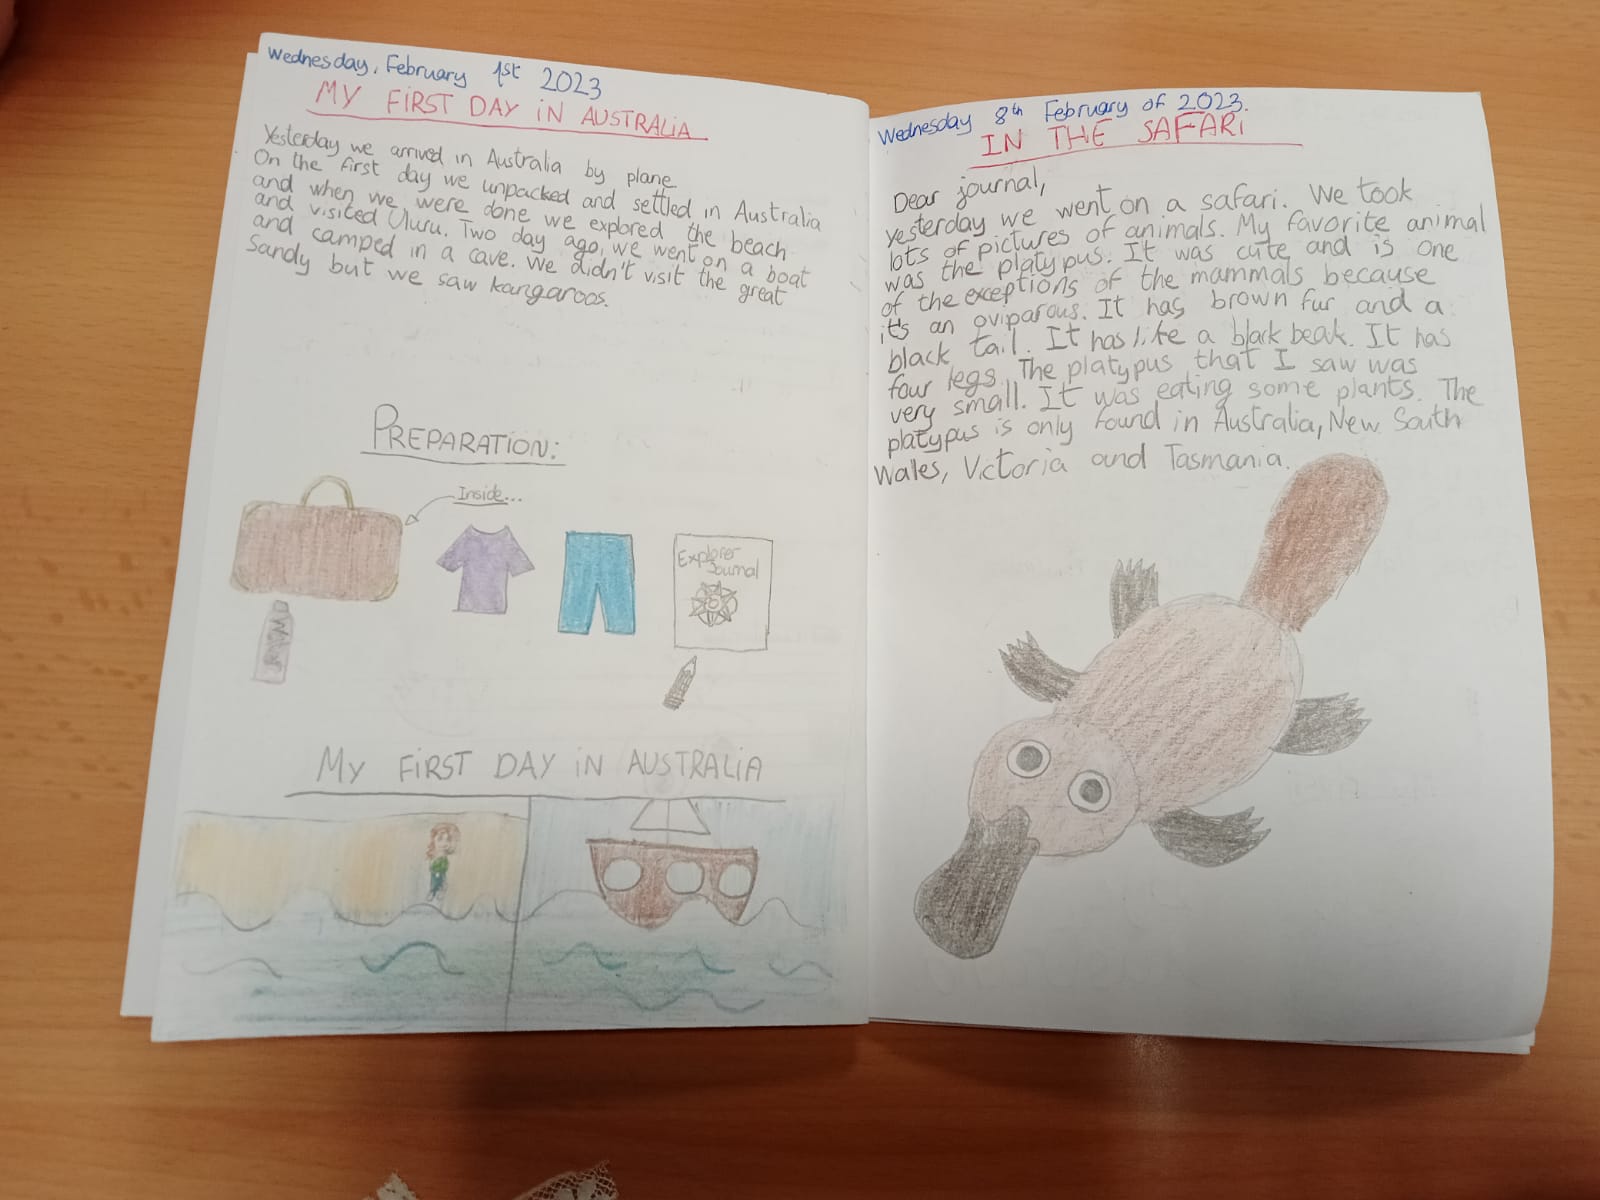 Wednesday, February 1st 2023
MY FIRST DAY IN AUSTRALIA
Yesterday we arrived in Australia by plane
On the first day we unpacked and settled in Australia
and when we were done we explored the beach
and visited Uluru. Two day ago, we went on a boat
and camped in a cave. We didn't visit the great
Sandy but we saw kangaroos.
PREPARATION:
Inside...
Explorer
Journal
Water
MY FIRST DAY IN AUSTRALIA
Wednesday 8th February of 2023.
IN THE SAFARI
Dear journal,
yesterday we went on a safari. We took
lots of pictures of animals. My favorite animal
was the platypus. It was cute and is one
of the exceptions of the mammals because
it's an oviparous. It has brown fur and a
black tail. It has like a black beak. It has
four legs. The platypus that I saw was
very small. It was eating some plants. The
platypus is only found in Australia, New South
Wales, Victoria and Tasmania.